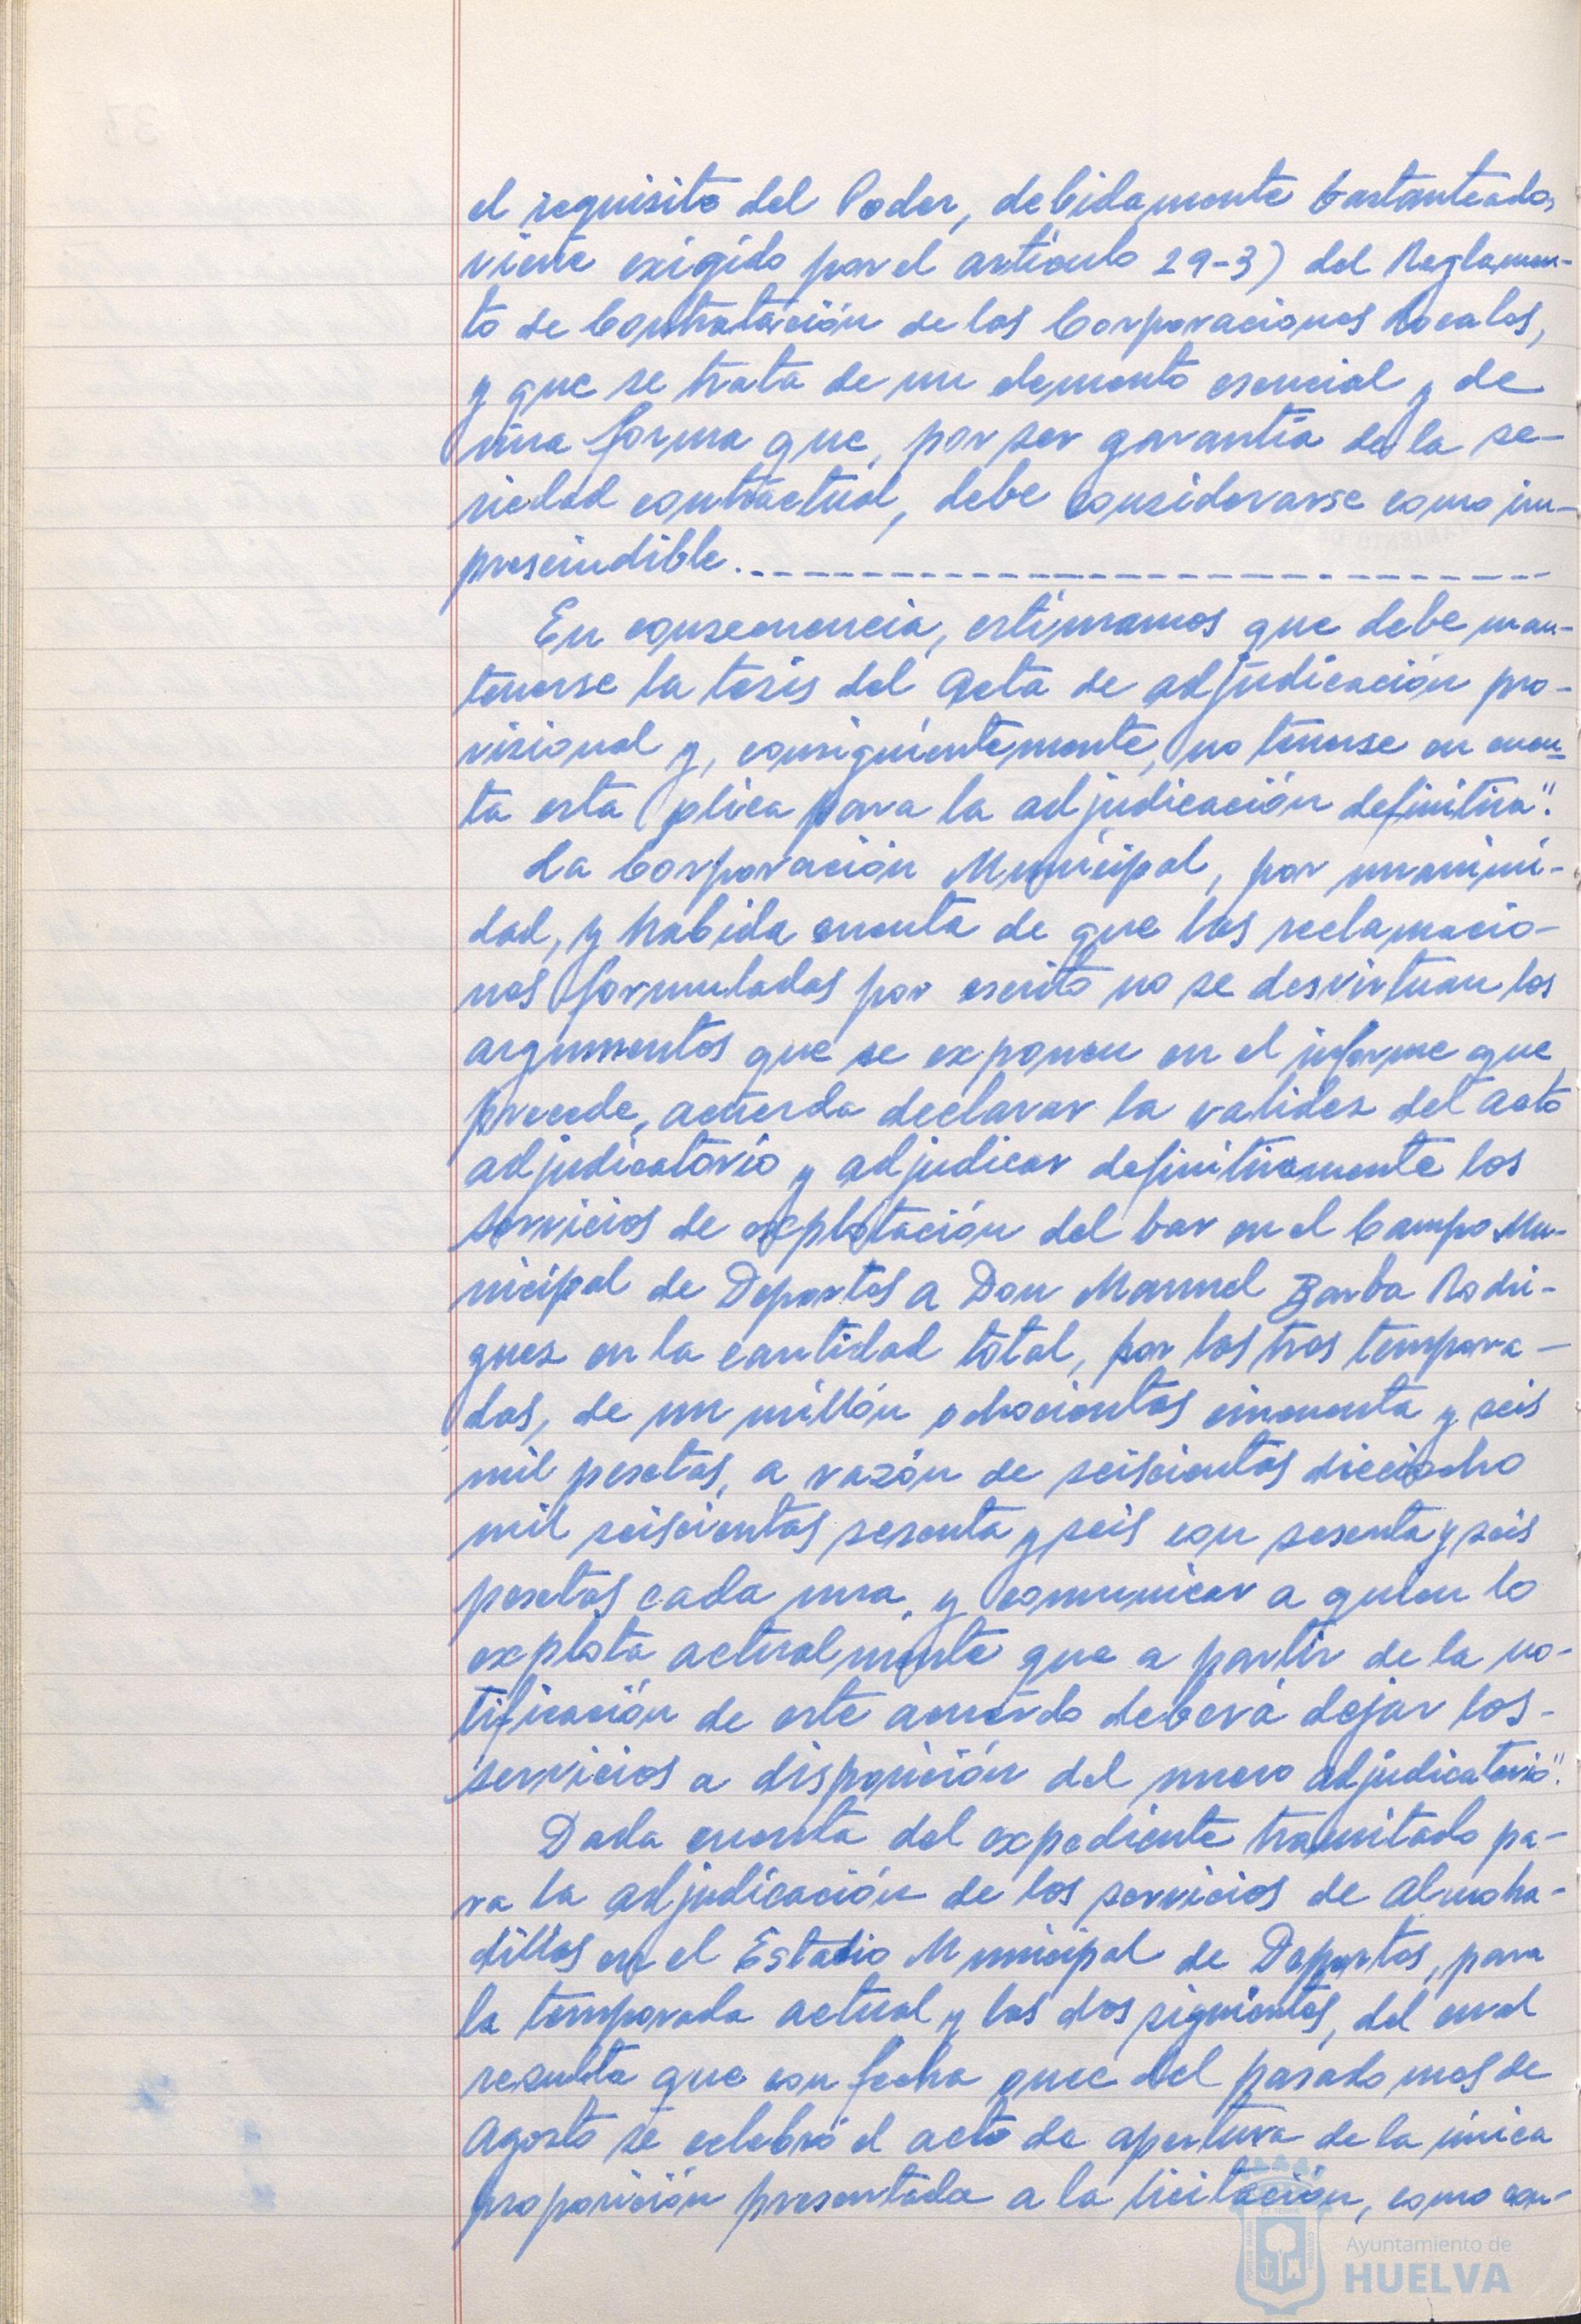 el requisito del Poder, debidamente bastanteado,
viene exigido por el artículo 29-3) del Reglamen-
to de Contratación de las Corporaciones Locales,
y que se trata de un elemento esencial y de
una forma que, por ser garantía de la se-
riedad contractual, debe considerarse como im-
prescindible.
En consecuencia, estimamos que debe man-
tenerse la tesis del Acta de adjudicación pro-
visional y, consiguientemente, no tenerse en cuen-
ta esta plica para la adjudicación definitiva".
La Corporación Municipal, por unanimi-
dad, y habida cuenta de que las reclamacio-
nes formuladas por escrito no se desvirtuan los
argumentos que se exponen en el informe que
precede, acuerda declarar la validez del acto
adjudicatorio y adjudicar definitivamente los
servicios de explotación del bar en el Campo Mu-
nicipal de Deportes a Don Manuel Barba Rodri-
guez en la cantidad total, por las tres tempora-
das, de un millón ochocientas cincuenta y seis
mil pesetas, a razón de seiscientas dieciocho
mil seiscientas sesenta y seis con sesenta y seis
pesetas cada una, y comunicar a quien lo
explota actualmente que a partir de la no-
tificación de este acuerdo deberá dejar los-
servicios a disposición del nuevo adjudicatario".
Dada cuenta del expediente tramitado pa-
ra la adjudicación de los servicios de almoha-
dillas en el Estadio Municipal de Deportes, para
la temporada actual y las dos siguientes, del cual
resulta que con fecha once del pasado mes de
Agosto se celebró el acto de apertura de la única
proposición presentada a la licitación, como con-
Ayuntamiento de
HUELVA